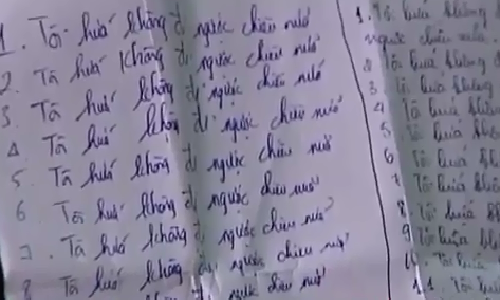 1. Tôi hứa không đi ngược chiều nữa
2. Tôi hứa không đi ngược chiều nữa
3. Tôi hứa không đi ngược chiều nữa
4. Tôi hứa không đi ngược chiều nữa
5. Tôi hứa không đi ngược chiều nữa
6. Tôi hứa không đi ngược chiều nữa
7. Tôi hứa không đi ngược chiều nữa
8. Tôi hứa không đi ngược chiều nữa
ngược chiều nữa
1. Tôi hứa không
ngược chiều nữa
2 Tôi hứa không
3 Tôi hứa không
4 Tôi hứa không
5 Tôi hứa không
6 Tôi hứa không
7 Tôi hứa không
8 Tôi hứa
9 Tôi hứa không
10. Tôi hứa
11. Tôi